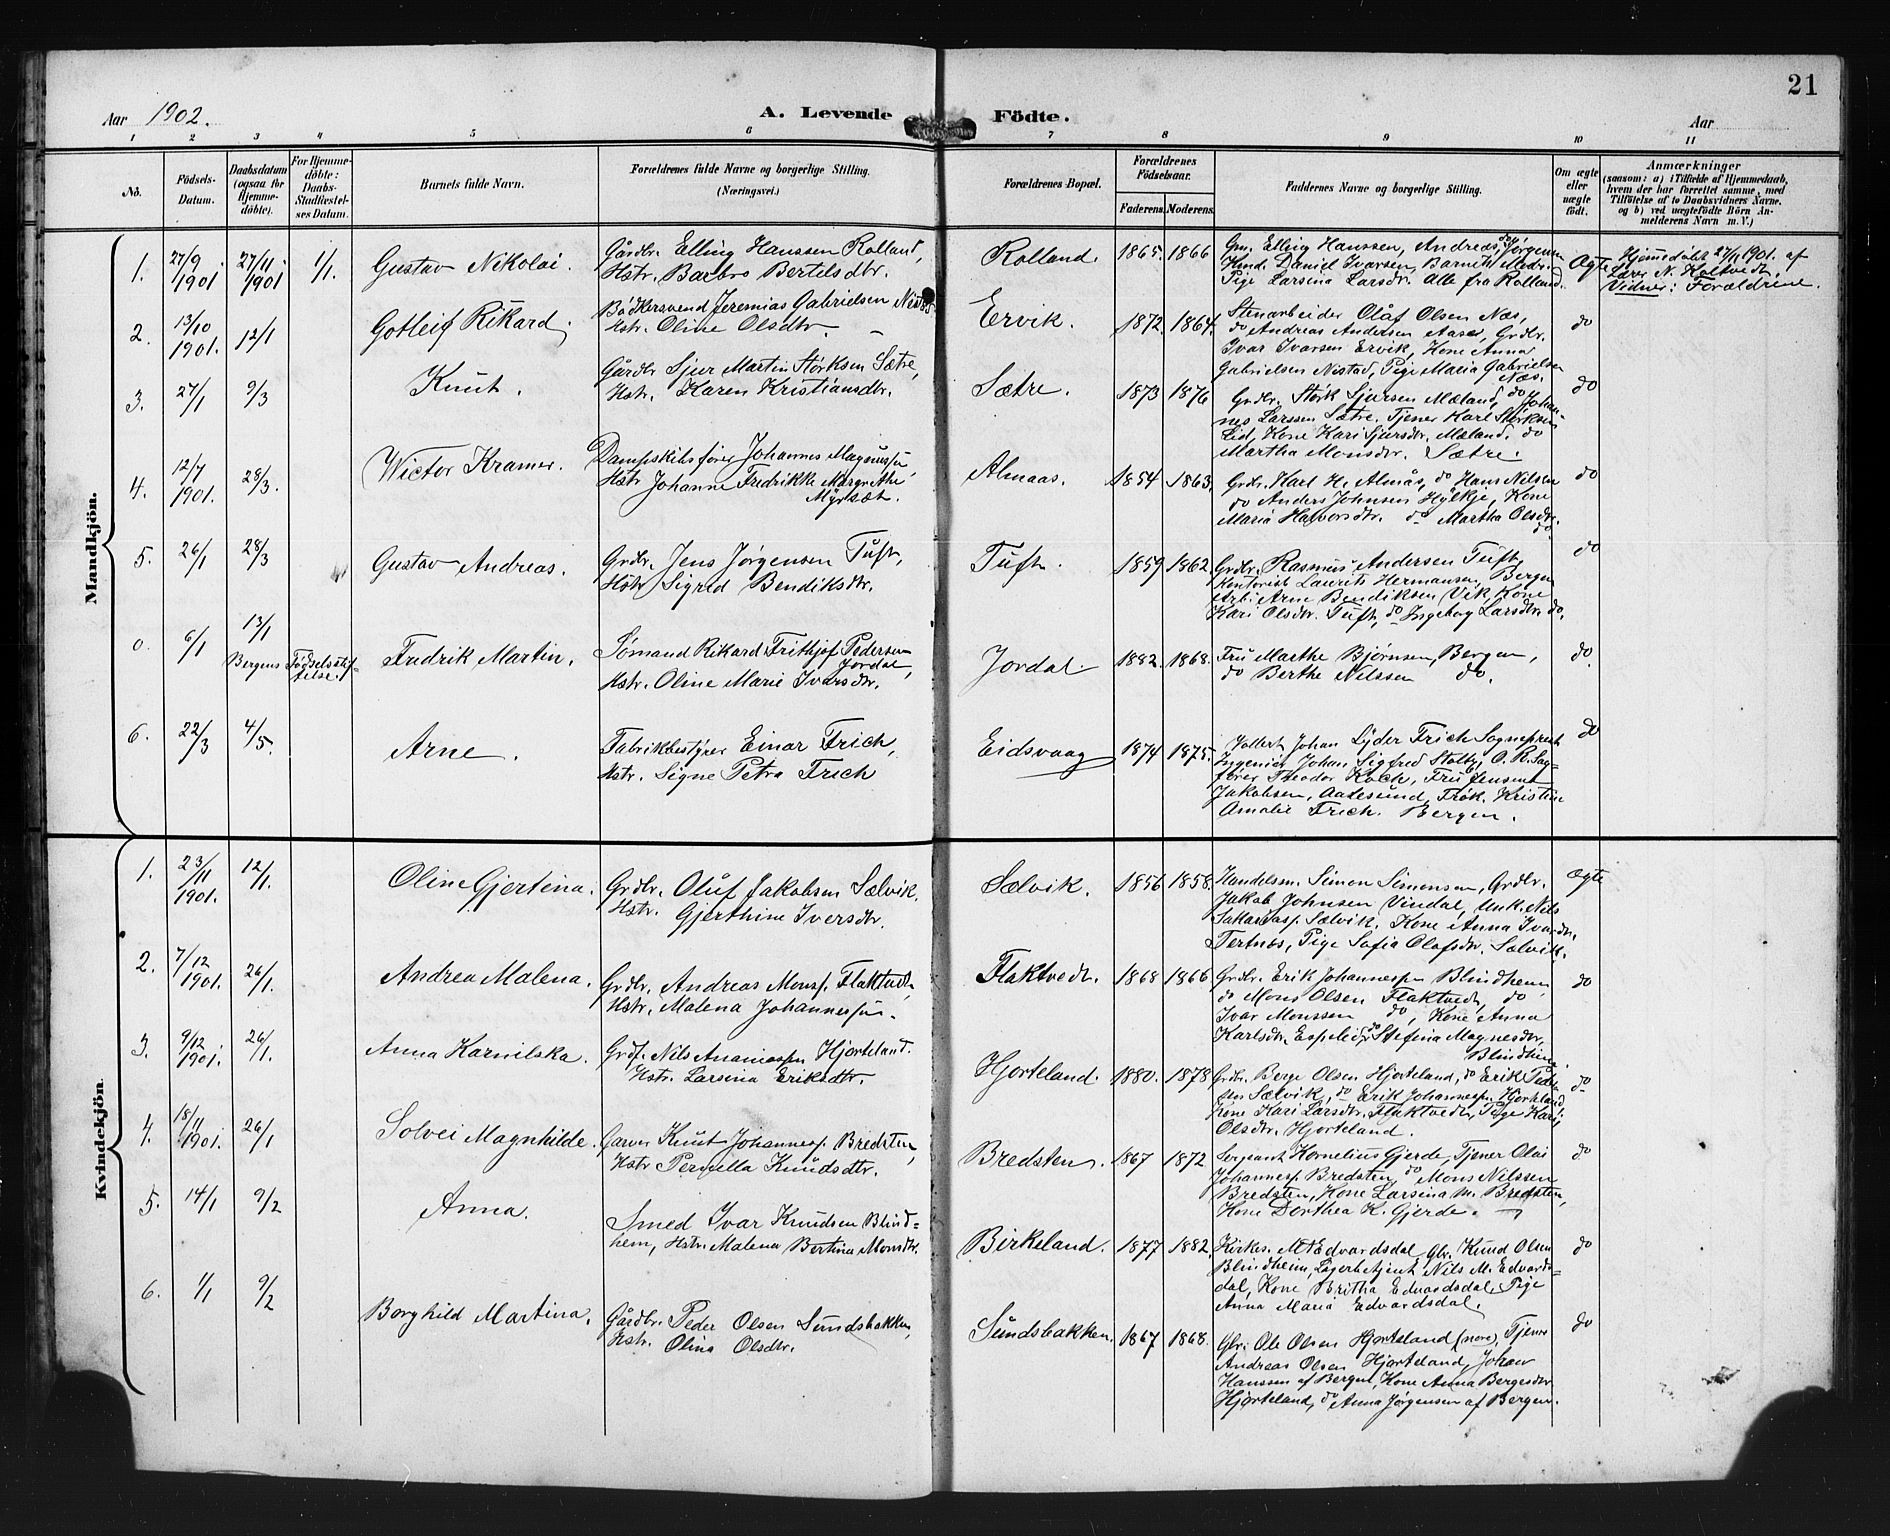 21
Aar 1902.
A. Levende Födte.
Aar
1 2 3 4 5 6 7 8 9 10 11
No.
Födsels-
Datum.
Daabsdatum
(ogsaa for
Hjemme-
döbte).
For Hjemme-
döbte:
Daabs-
Stadfæstel-
ses Datum.
Barnets fulde Navn.
Forældrenes fulde Navne og borgerlige Stilling.
(Næringsvei.)
Forældrenes Bopæl.
Forældrenes
Födselsaar.
Faderens. Moderens.
Faddernes Navne og borgerlige Stilling.
Om ægte
eller
uægte
födt.
Anmærkninger
(saasom: a) i Tilfælde af Hjemmedaab,
hvem der har forrettet samme, med
Tilföielse af to Daabsvidners Navne.
og b) ved uægtefödte Börn An-
melderens Navn m. V.)
Mandkjön.
1. 27/9 1901 27/11 1901 1/1 Gustav Nikolai.
Gårdbr. Elling Hanssen Rolland,
Hstr. Barbro Bertelsdtr.
Rolland. 1865. 1866
Gm. Elling Hanssen, Andreas do Jørgensen
Knud Daniel Ivarsen, Barnets Mdr.
Pige Larsina Larsdtr. Alle fra Rolland.
Ægte
Hjemmedøbt 27/11 1901. af
Lærer N. Koltvedt.
Vidner: Forældrene.
2. 13/10 1901. 12/1 Gotleif Rikard.
Bødkersvend Jeremias Gabrielsen
Hstr. Oline Olsdtr.
Ervik. 1872 1864.
Stenarbeider Olåf Olsen Næs,
do Andreas Andersen Aasæ, Grdbr.
Ivar Ivarsen Ervik, Kone Anna
Gabrielsen Nistad, Pige Maria Gabrielsen
Næs.
do
3. 27/1 9/3 Knut.
Gårdbr Sjur Martin Størksen Sætre,
Hstr. Karen Kristiansdtr.
Sætre. 1873 1876
Grdbr. Størk Sjursen Mæland, do Johan-
nes Larssen Sætre. Tjener Karl Størksen
Lid, Kone Kari Sjursdtr. Mæland. do
Martha Monsdtr. Sætre.
do
4. 12/7 1901. 28/3. Wictor Kramer.
Dampskibsfører Johannes Magnussen
Hstr Johanne Fredrikke Margrethe
Almaas. 1854 1863.
Grdbr. Karl H. Almås, do Hans Nilsen
do Anders Johnsen Hylkje, Kone
Maria Halvorsdtr. do Martha Olsdtr.
do.
do
5. 26/1 28/3 Gustav Andreas.
Grdbr. Jens Jørgensen Tuft,
Hstr Sigrid Bendiksdtr.
Tuft. 1859 1862
Grdbr. Rasmus Andersen Tuft,
Kontorist Laurits Hermansen, Bergen
Arb: Arne Bendiksen Vik, Kone
Kari Olsdtr. Tuft, do Ingeborg Larsdtr. do.
do
0. 6/1 13/1
Bergens Fødselsstif-
telse.
Fredrik Martin.
Sømand Rikard Frithjof Pedersen
Jordal,
Hstr. Oline Marie Ivarsdtr.
Jordal. 1882. 1868.
Fru Marthe Bjørnsen, Bergen,
do Berthe Nilssen do.
do.
6. 22/3 4/5. Arne.
Fabrikbestyrer Einar Frich,
Hstr. Signe Petra Frich
Eidsvaag 1874 1875.
Vollert Johan Lyder Frich Sogneprest
Ingeniør Johan Sigfred Stolty, O. R. Sag-
fører Theodor Koch, Fru Jensine
Jakobsen, Aalesund, Frøk. Kristine
Amalie Frich. Bergen.
do
Kvindekjön.
1. 23/11 1901. 12/1. Oline Gjertina.
Grdbr. Oluf Jakobsen Sælvik.
Hstr. Gjerthine Iversdtr.
Sælvik. 1856 1858.
Handelsm. Simon Simonsen, Grdbr.
Jakob Johnsen Vindal, Unk. Nils
Sakariasp. Sælvik. Kone Anna Ivarsdtr.
Tertnæs, Pige Sofia Olafsdtr. Sælvik.
Ægte
2. 7/12 1901. 26/1. Andrea Malena.
Grdbr. Andreas Monsp. Flaktvedt,
Hstr. Malena Johannessen.
Flaktvedt. 1868 1866
Grdbr. Erik Johannesen Blindheim,
do Mons Olsen Flaktvedt, do
Ivar Monssen do, Kone Anna
Karlsdtr. Espelid, do Stefina Magnesdtr.
Blindheim.
do
3. 9/12 1901. 26/1. Anna Karnilska.
Grdf. Nils Ananiassen Hjorteland.
Hstr. Larsina Eriksdtr.
Hjorteland. 1880. 1878
Grdbr. Berge Olsen Hjorteland, do Erik Peder-
sen Sælvik, do Erik Johannesp. Hjorteland
Kone Kari Larsdtr. Flaktvedt, Pige Kari
Olsdtr. Hjorteland.
do
4. 18/11 1901. 26/1 Solvei Magnhilde.
Garver Knut Johannesp. Bredsten,
Hstr Pernella Knudsdtr.
Bredsten. 1867 1872
Sergeant Kornelius Gjerde, Tjener Olai
Johannesp. Bredsten do Mons Nilssen
Bredsten, Kone Larsina M. Bredsten,
Kone Dorthea K. Gjerde.
do
5. 14/1 9/2 Anna.
Smed Ivar Knudsen Blind-
hem, Hstr. Malena Bertina Monsdtr.
Birkeland. 1877 1882.
Kirkes. M. Edvardsdal, Gbr. Knud Olsen
Blindheim, Lagerbetjent Nils M. Edvards-
dal, Kone Britha Edvardsdal. Pige
Anna Maria Edvardsdal.
do
6. 1/1 9/2 Borghild Martina.
Gårdbr. Peder Olsen Sundsbakken,
Hstr. Olina Olsdtr.
Sundsbakken. 1867 1868.
Gbr. Ole Olsen Hjorteland (nore), Tjener
Andreas Olsen Hjorteland, Johan
Hanssen af Bergen, Kone Anna Bergesdtr
Hjorteland, do Anna Jørgensen af Bergen.
do